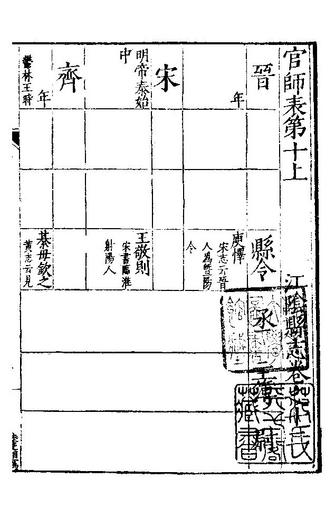 江陰縣志卷
官師表第十上
晉
年
縣令
丞
主簿
尉
庾懌
宋志云晉
人爲暨陽
令
宋
明帝泰始
中
王敬則
宋書臨淮
射陽人
齊
年
鬱林王時
綦母欽之
黃志云見
藏書